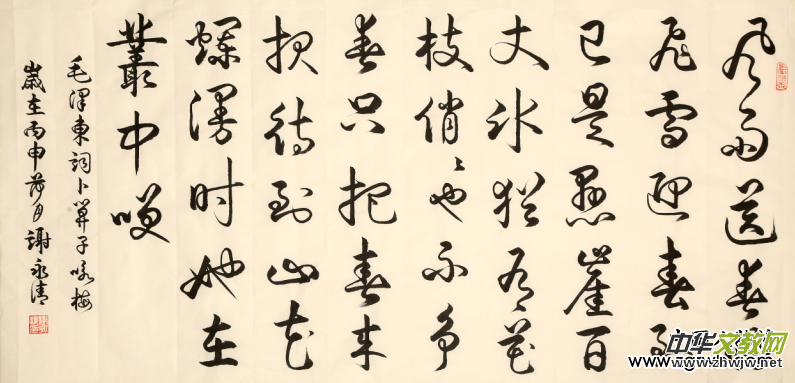 风雨送春
飞雪迎春到
已是悬崖百
丈冰犹有花
枝俏〻也不争
春只把春来
报待到山花
烂漫时她在
叢中咲
毛澤東詞卜算子咏梅
歲在丙申荷月謝永清
中华文教网
www.zhwjw.net